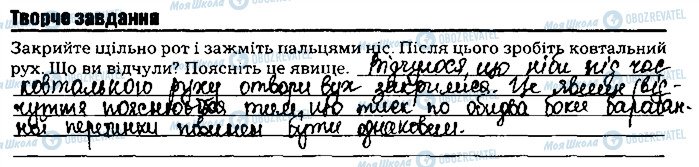 Творче завдання
Закрийте щільно рот і зажміть пальцями ніс. Після цього зробіть ковтальний
рух. Що ви відчули? Поясніть це явище. що ніби під час
ковтального руху отвори вух закрилися. Це явище (від-
чуття пояснюється тим, що тиск по обидва боки барабан-
ної перетинки повинен бути однаковим.